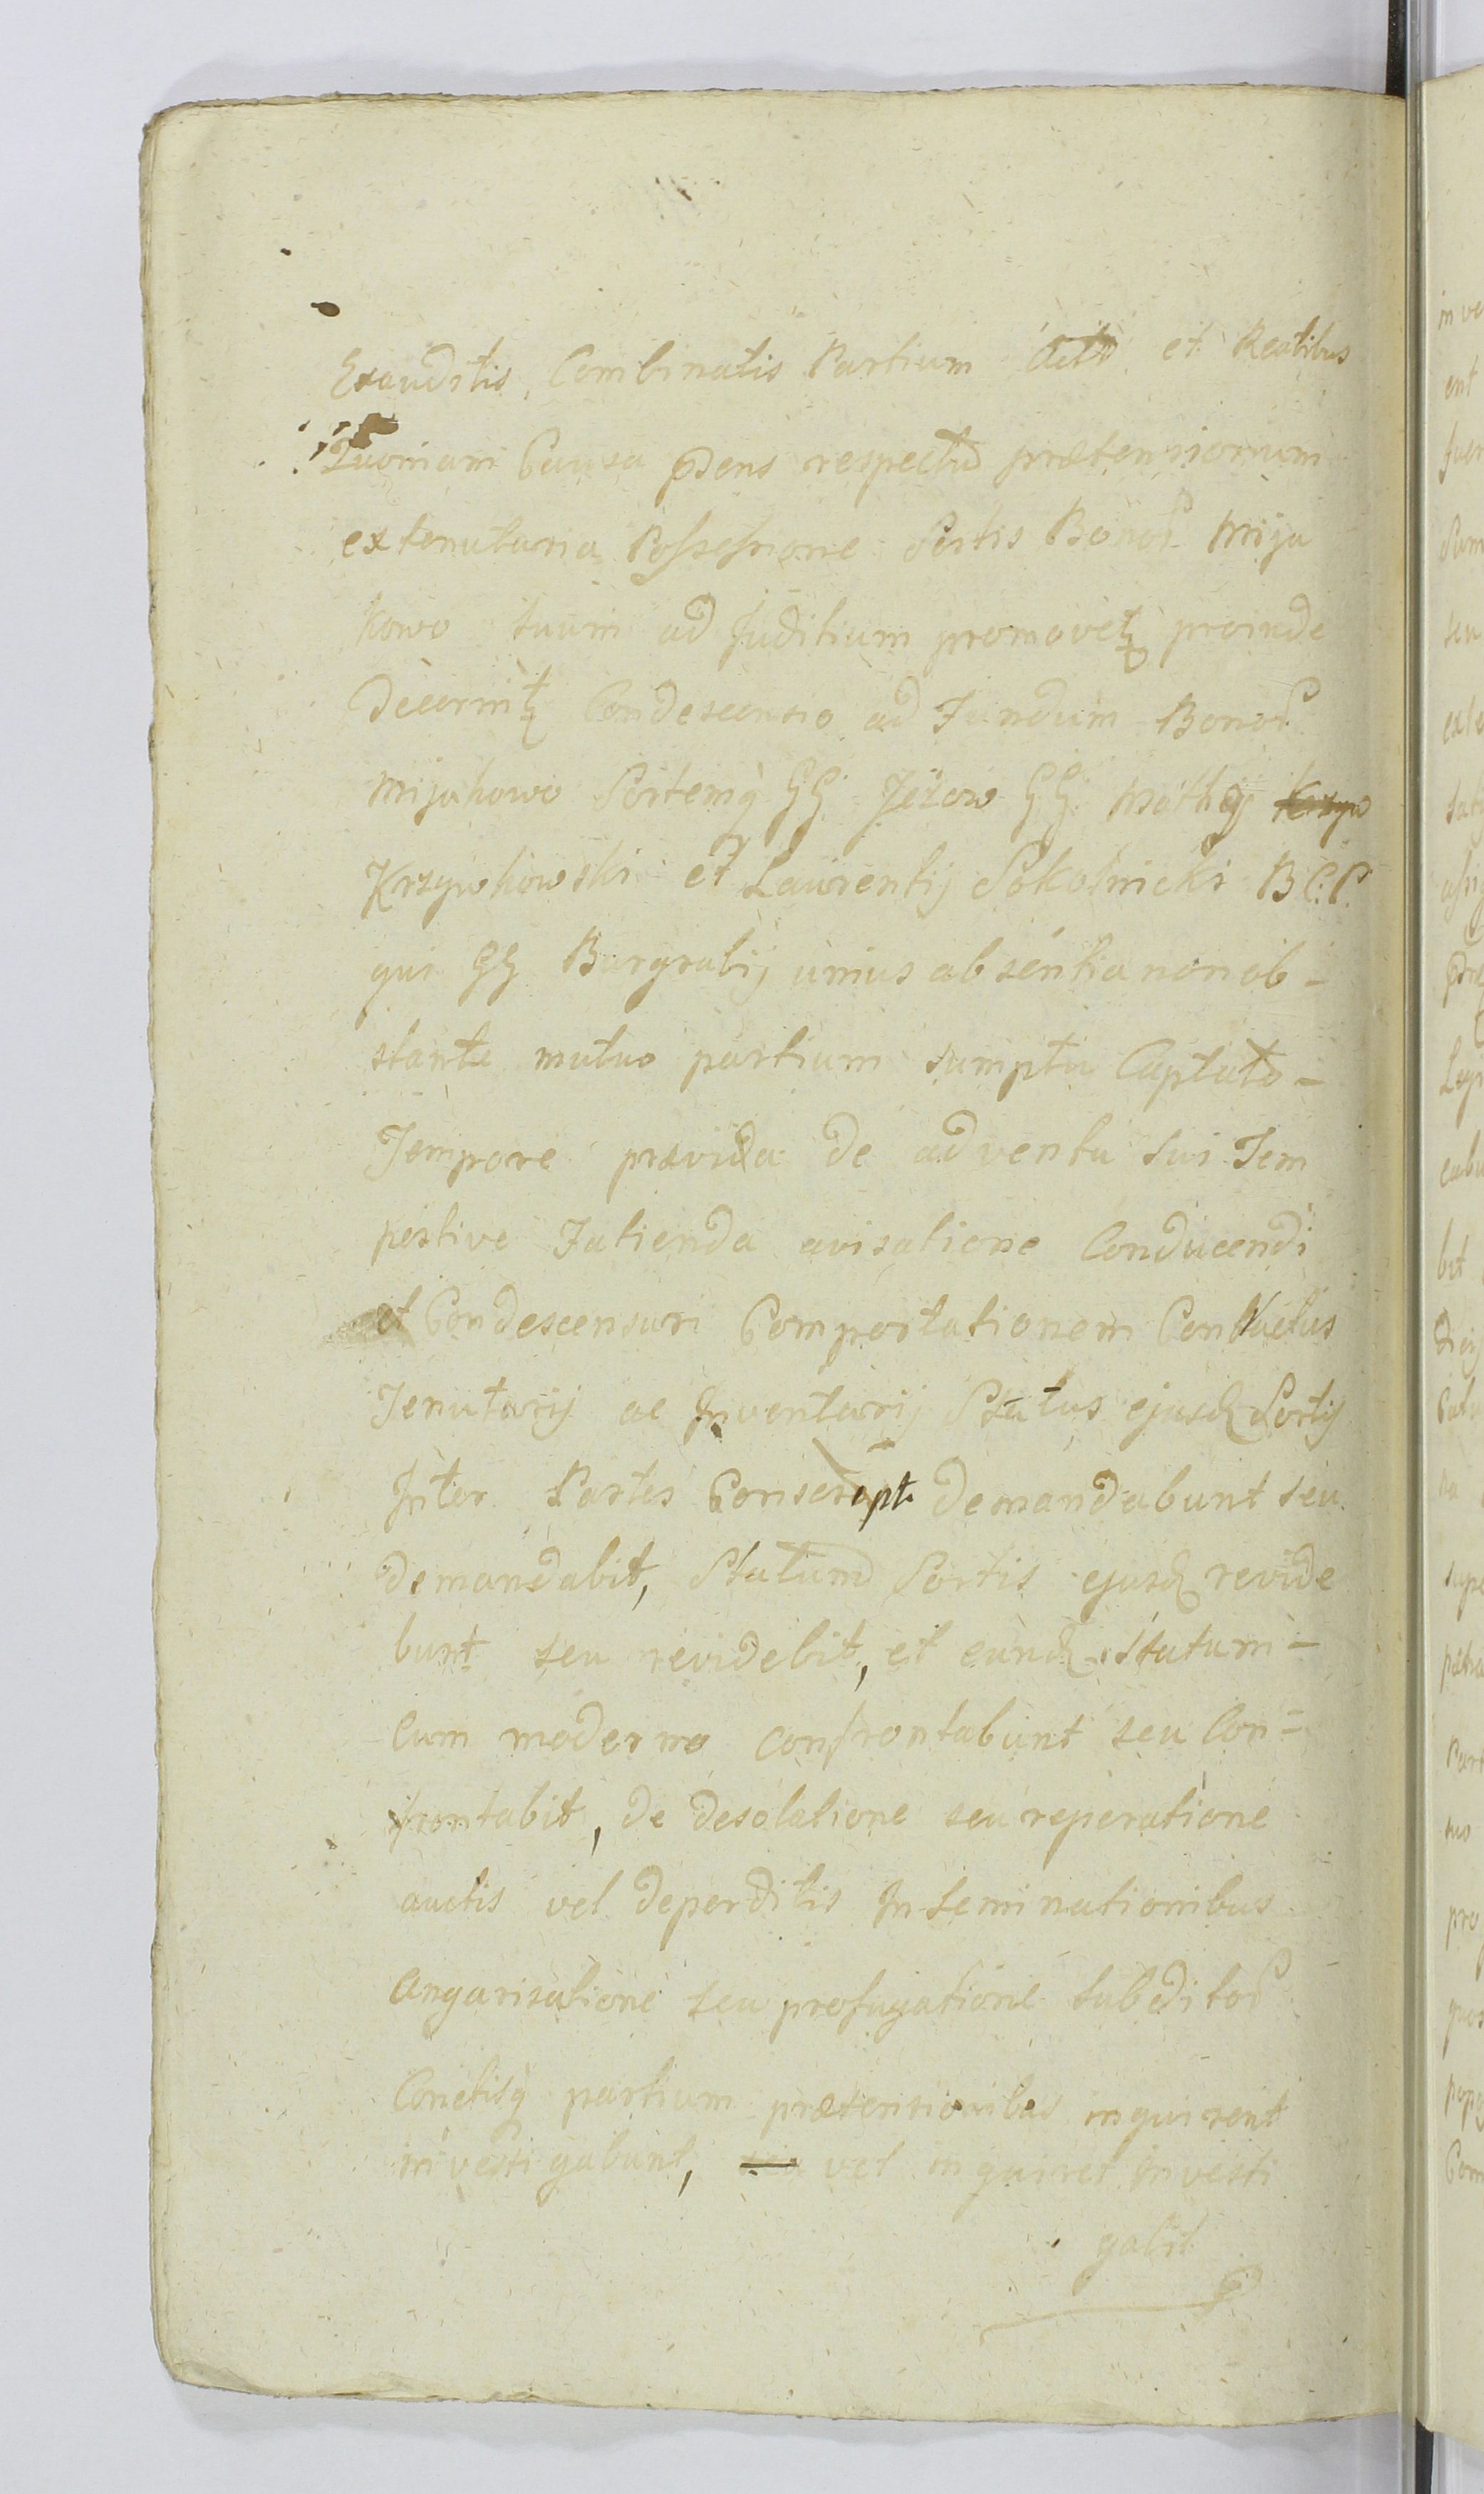 Exauditis, Combinatis Partium Acto et Reatibus
Quoniam Causa pdens respectu prætensionum
ex tenutaria Possessione Sortis Bonor Mija
kowo suum ad Juditium promovetz proinde
Decernitz Condescensio ad Fundum Bonor
Mijakowo Sortemq GG Jeżow GG Mathij Krzyw
Krzywkowski et Laurentij Sokolnicki B C: P.
qui GG Burgrabij unius absentia non ob-
stante mutuo partium sumptu Captato-
Tempore prævida de adventu sui Tem
pestive Fatienda avisatione Conducendi
et Condescensuri Comportationem Contractus
Tenutarij ac Inventarij Status ejusd Sortis
Inter Partes Conscript demandabunt seu
demandabit, Statum Sortis ejusd revide
bunt seu revidebit, et eund Statum-
Cum moderno confrontabunt seu Con=
frontabit, de desolatione seu reperatione
auctis vel deperditis Inseminationibus
Angarisatione seu profugatione subditor
Cunctisq partium prætensionibus inquirent
investigabunt, seu vel inquiret Investi
gabit